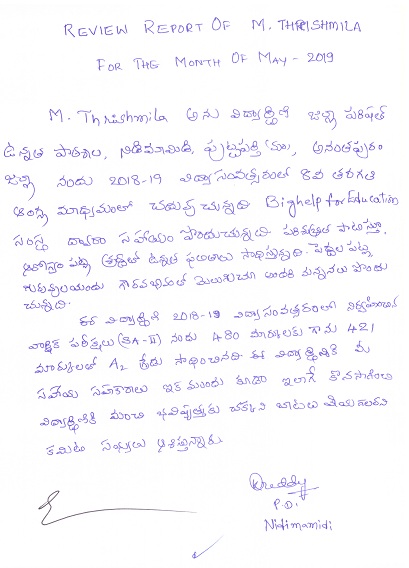 REVIEW REPORT OF M. THRISHMILA
FOR THE MONTH OF MAY - 2019
M. Thrishmila అను విద్యార్థిణి జిల్లా పరిషత్
ఉన్నత పాఠశాల, నిడిమామిడి, పుట్టపర్తి (మం), అనంతపురం
జిల్లా నందు 2018-19 విద్యాసంవత్సరంలో 8వ తరగతి
ఆంగ్ల మాధ్యమంలో చదువుచున్నది Bighelp for Education
సంస్థ ద్వారా సహాయం పొందుచున్నది పరిశుభ్రత పాటిస్తూ,
ఆరోగ్యం పట్ల శ్రద్ధతో ఉన్నత ఫలితాలు సాధిస్తున్నది. పెద్దల పట్ల,
గురువులయందు గౌరవభావంతో మెలుగుచూ అందరి మన్ననలు పొందు
చున్నది.
ఈ విద్యార్థిణి 2018-19 విద్యాసంవత్సరంలో నిర్వహించిన
వార్షిక పరీక్షలు (SA-II) నందు 480 మార్కులకు గాను 421
మార్కులతో A2 గ్రేడు సాధించినది ఈ విద్యార్థిణికి మీ
సహాయ సహకారాలు ఇక ముందు కూడా ఇలాగే కొనసాగించి
విద్యార్థిణికి మంచి భవిష్యత్తుకు చక్కని బాటలు వేయగలరని
కమిటీ సభ్యులు ఆశిస్తున్నారు
Kreddy
P.D.
Nidimamidi